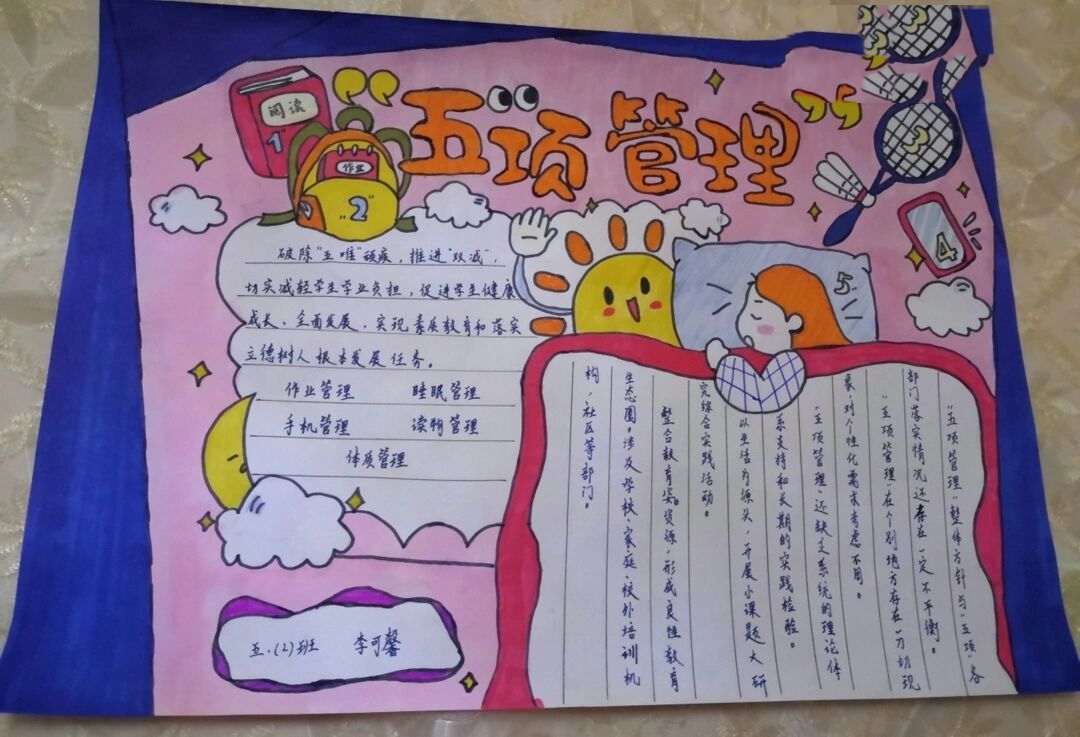 “五项管理”
阅读
1
作业
2
3
4
5
破除“五唯”顽疾，推进“双减”，
切实减轻学生学业负担，促进学生健康
成长、全面发展，实现素质教育和落实
立德树人根本发展任务。
作业管理 睡眠管理
手机管理 读物管理
体质管理
“五项管理”整体方针与“五项”各
部门落实情况还存在一定不平衡。
“五项管理”在个别地方存在一刀切现
象，对个性化需求考虑不周。
“五项管理”还缺乏系统的理论体
系支持和长期的实践检验。
以生活为源头，开展小课题大研
究综合实践活动。
整合教育资源，形成良性教育
生态圈。涉及学校、家庭、校外培训机
构，社区等部门。
五.(2)班 李可馨